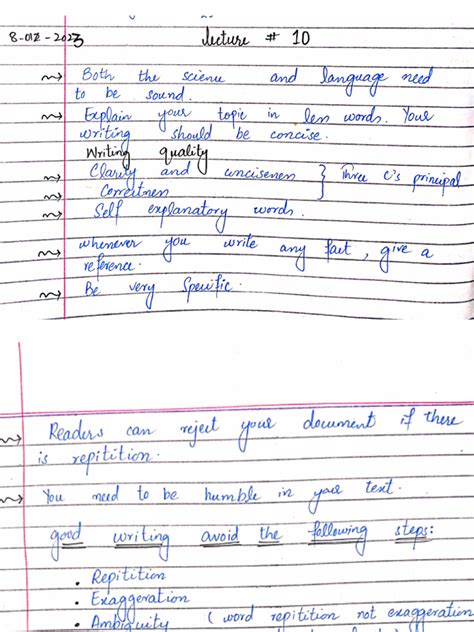 8-012-2023
lecture # 10
Both the science and language need
to be sound.
Explain your topic in less words. Your
writing should be concise.
Writing quality
Clarity and conciseness } Three C's principal
Correctness
Self explanatory words.
whenever you write any fact, give a
reference.
Be very Specific.
Readers can reject your document if there
is repitition.
You need to be humble in your text.
good writing avoid the following steps:
• Repitition
• Exaggeration
• Ambiguity (word repitition not exaggeration